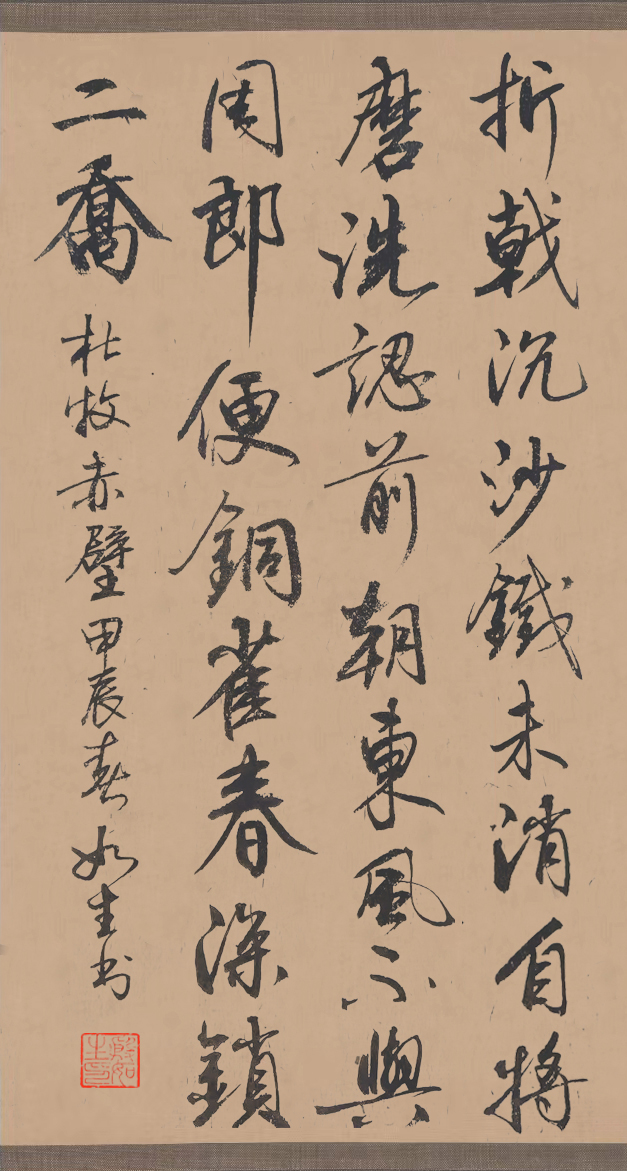 折戟沉沙鐵未消自將
磨洗認前朝東風不與
周郎便銅雀春深鎖
二喬
杜牧赤壁甲辰春如生书
殷如生印